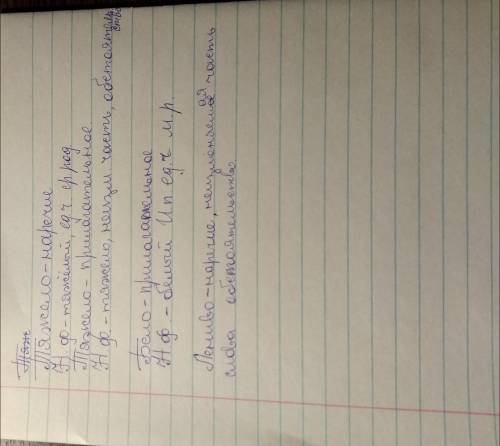 Тяж
Тяжело-наречие
Н.ф-тяжёлый, ед.ч ср.род
Тяжело-прилагательное
Н.ф-тяжело, неизм часть, обстоятельство
Бело-прилагательное
Н.ф-белый И п ед.ч м.р.
Лениво-наречие, неизменяемая часть
слова обстоятельство.